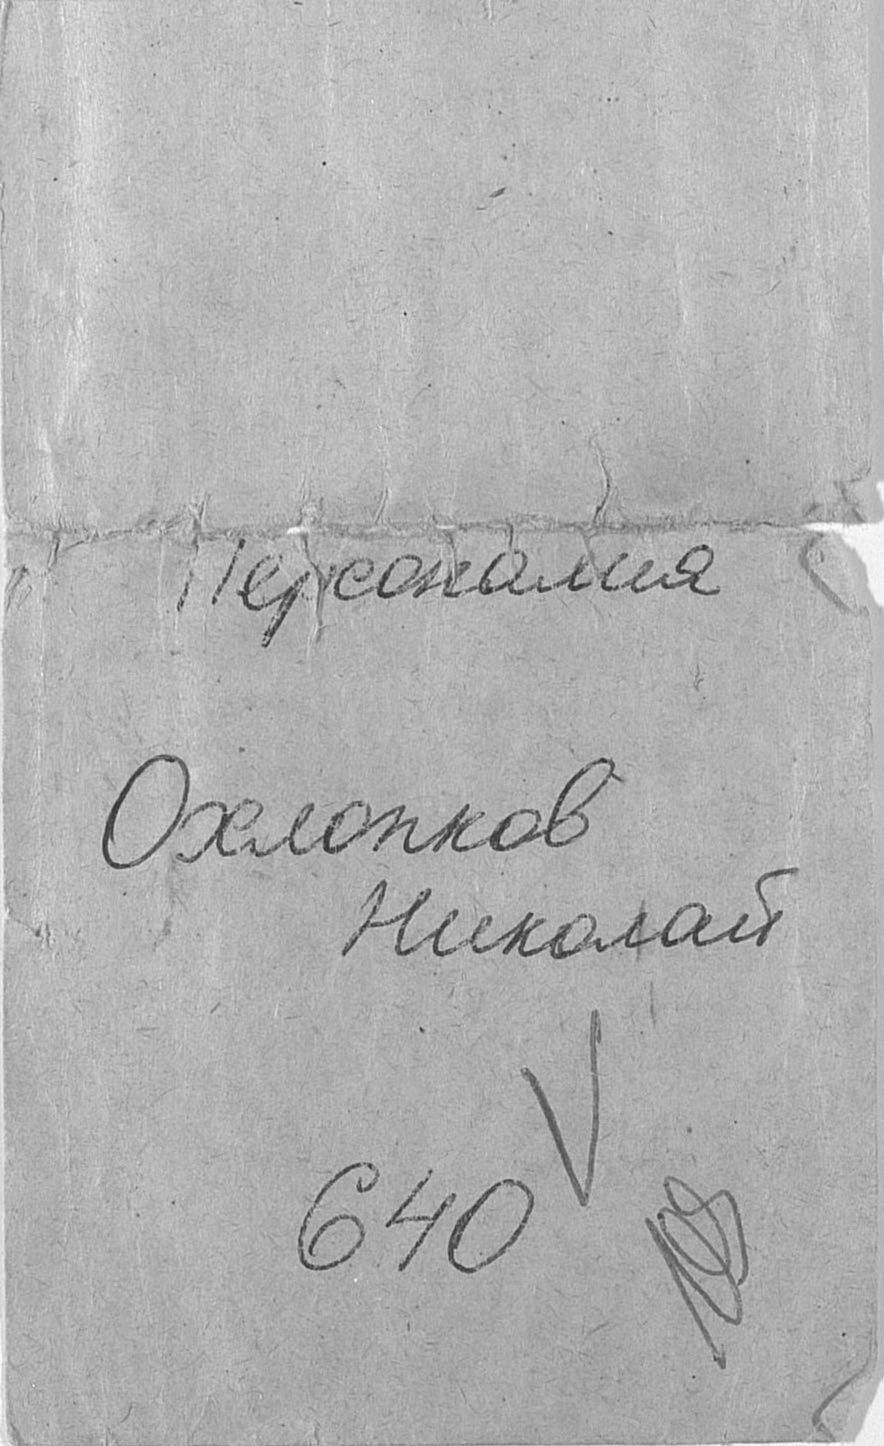 Персоналия
Охлопков
Николай
640